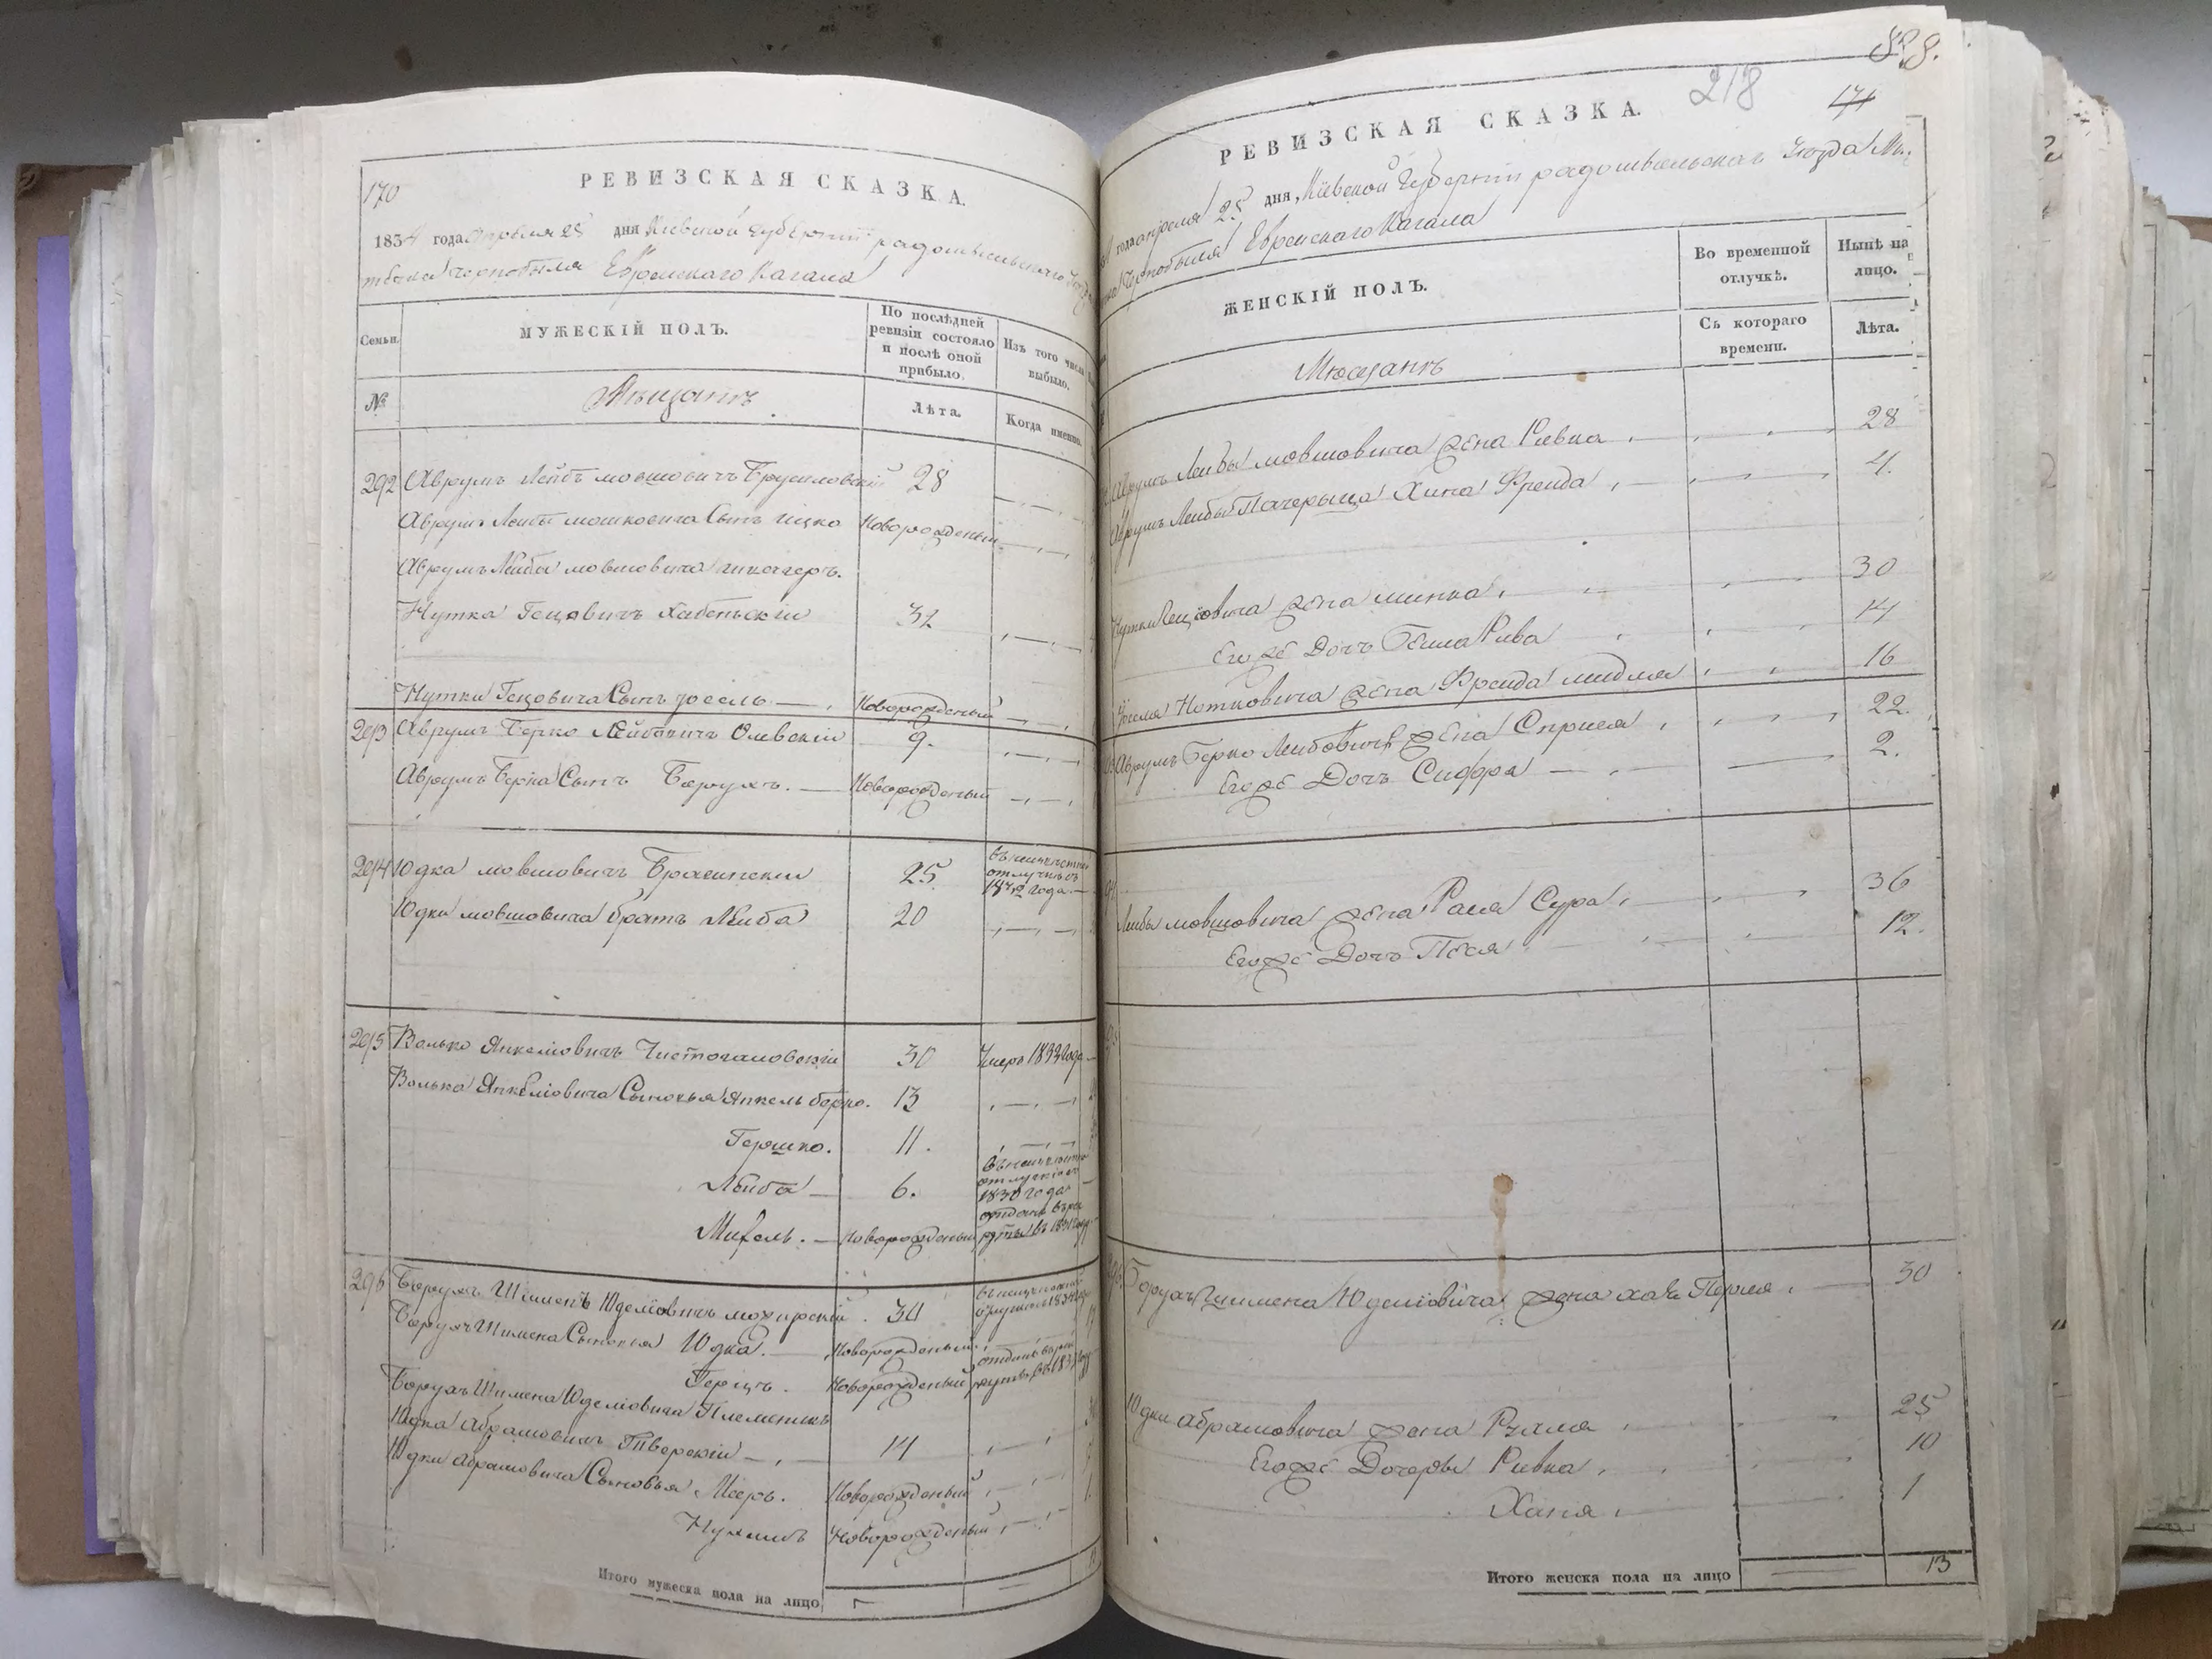 170
РЕВИЗСКАЯ СКАЗКА.
1834 года апреля 25 дня Киевской губернии радомысльскаго
местечка Чернобыля Еврейскаго Кагала
Семьи.
МУЖЕСКІЙ ПОЛЪ.
По послѣдней ревизіи состояло и послѣ оной прибыло.
Изъ того числа выбыло.
№
Мѣщанъ
Лѣта.
Когда именно.
292 Аврумъ Лейбъ мовшовичъ Брусиловскій 28
Аврумъ Лейбы мошковича Сынъ Ицко Новорожденый
Аврумъ Лейба мовшовича
Нутка Гецовичъ Хабенскій 32
Нутки Гецовича Сынъ Новорожденый
293 Аврумъ Берко Лейбовичъ Олевскій 9.
Аврумъ Берка Сынъ Борухъ. Новорожденый
294 Юдка мовшовичъ 25
отлучке съ
года
Юдки мовшовича братъ Лейба 20
295 Волько Янкеліовичъ Чистогаловскій 30 Умеръ 1833 года
Волька Янкеліовича Сыновья Янкель берко. 13
Гершко. 11.
Лейба 6.
1830 года
Михель. Новорожденый
296 Борухъ Шимень Юделіовичъ мозирскій 34
Борухъ Шимена Сыновья Юдка. Новорожденый
Герцъ. Новорожденый
Борухъ Шимена Юделіовича Племеникъ
Юдка Абрамовичъ Тверскій 14
Юдки Абрамовича Сыновья Мееръ. Новорожденый
Нухимъ Новорожденый
Итого мужеска пола на лицо
218
171
РЕВИЗСКАЯ СКАЗКА.
года апреля 25 дня, Киевской Губерніи радомысльскаго уезда
Чернобыля Еврейскаго Кагала
ЖЕНСКІЙ ПОЛЪ.
Во временной отлучкѣ.
Нынѣ на лицо.
Мѣщанъ
Съ котораго времени.
Лѣта.
Аврумъ Лейбы мовшовича жена Ривка 28
Аврумъ Лейбы Пачерыца Хина Фрейда 4.
Нутки Гецовича жена минка 30
Егоже Дочъ Бейла Рива 14
Нотковича жена Фрейда миндля 16
Аврумъ Берко Лейбовича жена Сприся 22.
Егоже Дочъ Сифра 2.
Лейбы мовшовича жена Рася Сура 36
Егоже Дочъ Песя 12.
Борухъ Шимена Юделіовича жена хая Перля 30
Юдки абрамовича жена Рухля 25
Егоже Дочеры Ривка 10
Ханя 1
Итого женска пола на лицо 13